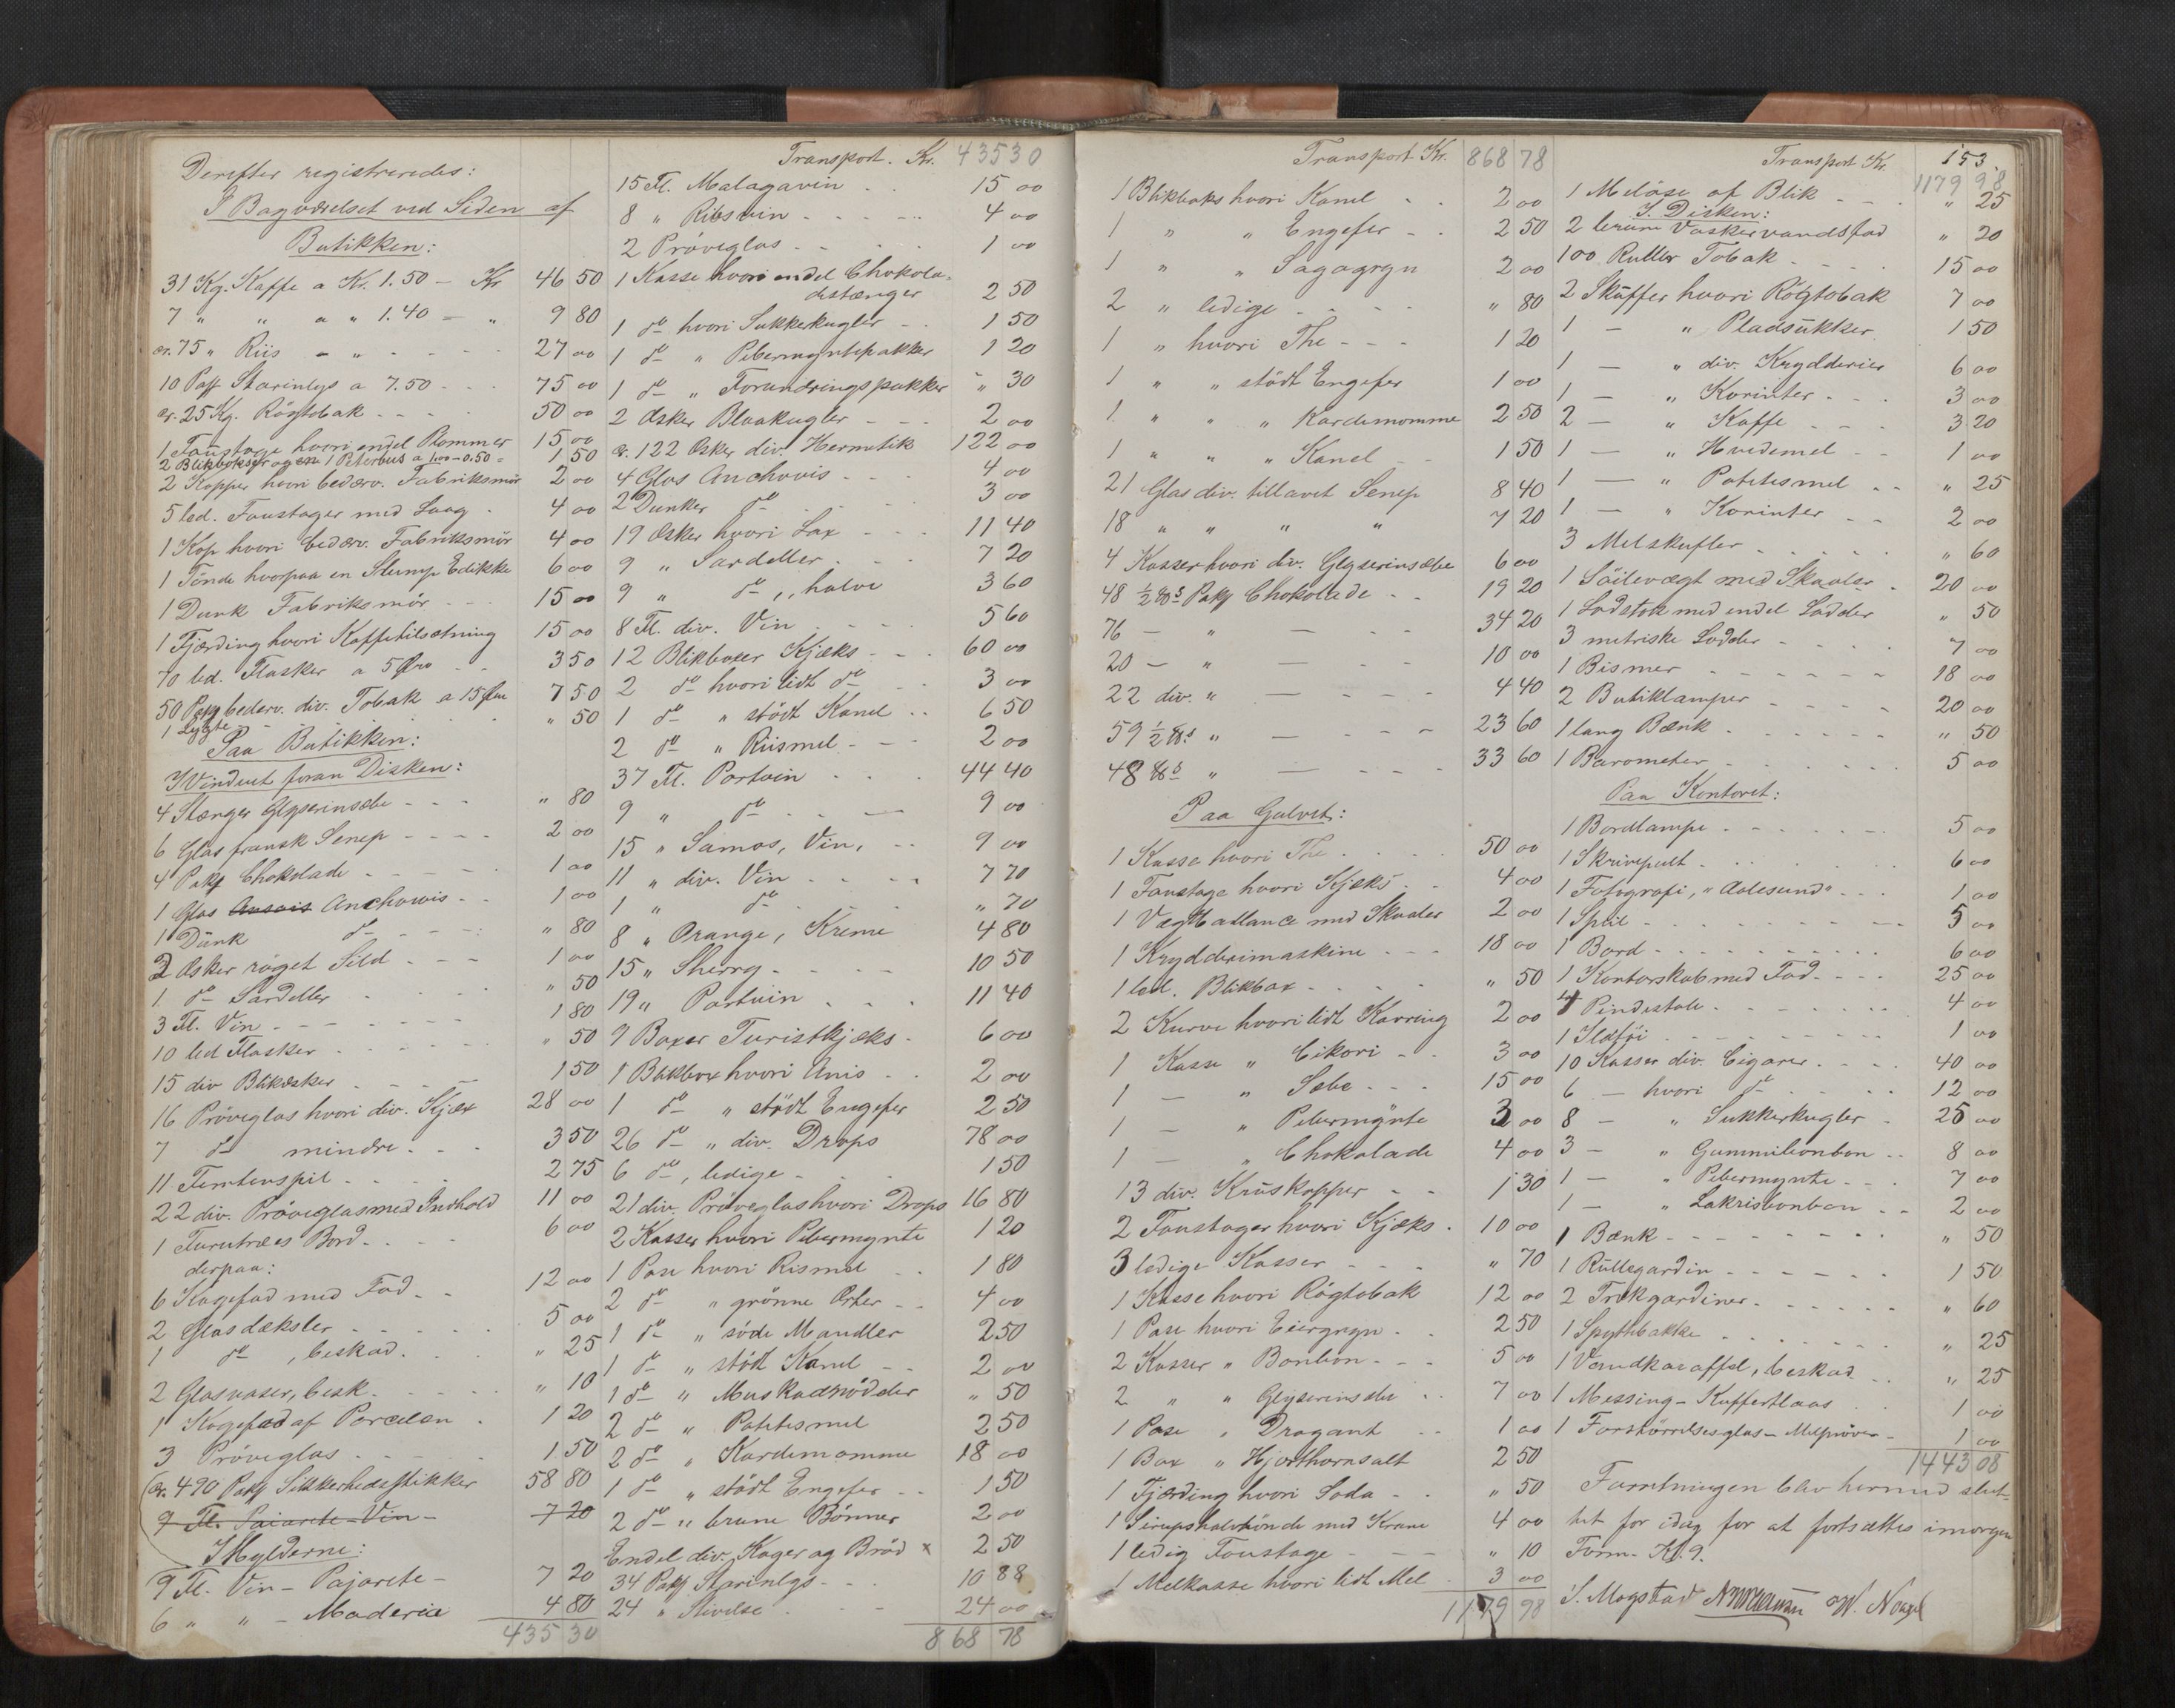 Derefter registreredes:
I Bagværelset ved Siden af
Butikken:
31 Kg. Kaffe a Kr. 1.50 — Kr 46 50
7 " " a " 1.40 — " 9 80
ca. 75 " Riis - " - 27 00
10 Pakk Stearinlys a 7.50 - - - 75 00
ca. 25 Kg. Røgtobak - - - - 50 00
1 Foustage hvori endel Plommer 15 00
2 Blikbokser og en 1 a 1.00 - 0.50 = 1 50
2 Kopper hvori bedærv. Fabriksmør 2 00
5 led. Foustager med Laag - 4 00
1 Kop hvori bedærv. Fabriksmør 4 00
1 Tønde hvorpaa en Slump Edikke 6 00
1 Dunk Fabriksmør - - - 15 00
1 Fjærding hvori Kaffetilsætning 15 00
70 led. Flasker a 5 Øre - - 3 50
50 Pakk bedærv. div. Tobak a 15 Øre 7 50
1 Lygte - - - " 50
Paa Butikken:
I Vinduet foran Disken:
4 Stænger Glyserinsæbe - - - " 80
6 Glas fransk Senep - - - - 2 00
4 Pakk Chokolade - - - - - 1 00
1 Glas Ansois Anchowis - - 1 00
1 Dunk do - - - " 80
2 Æsker røget Sild - - - 1 00
1 do Sardeller - - - " 50
3 Fl. Vin - - - - - - 1 80
10 led Flasker - - - - " 50
15 div Blikæsker - - - - 1 50
16 Prøveglas hvori div. Kjæx 28 00
7 do mindre - - - 3 50
11 Femtenspil - - - - 2 75
22 div. Prøveglas med Indhold 11 00
1 Furutræes Bord - - - 6 00
derpaa:
6 Kagefad med Fod - - 12 00
2 Glasdæksler - - - - 5 00
1 do , beskad. - - - " 25
2 Glasvaser, besk. - - - - " 10
1 Kagefad af Porcelæn . 1 20
3 Prøveglas - - - - - 1 50
ca. 490 Pakk Sikkerhedsstikker 58 80
9 Fl. Paiarete-Vin - 7 20
I Hylderne:
9 Fl. Vin - Pajarete - 7 20
6 " " - Maderia 4 80
435 30
Transport. Kr. 435 30
15 Fl. Malagavin - - 15 00
8 " Ribsvin - - - - - 4 00
2 Prøveglas - - - - 1 00
1 Kasse hvori endel Chokola-
destænger 2 50
1 do hvori Sukkerkugler - - 1 50
1 do " Pebermyntepakker 1 20
1 do " Forundringspakker " 30
2 Æsker Blaakugler - - - 2 00
ca. 122 Æsker div. Hermetik 122 00
4 Glas Anchovis - - - 4 00
2 Dunker do - - - 3 00
19 Æsker hvori Lax - - - 11 40
9 " Sardeller - - - 7 20
9 " do ,, halve 3 60
8 Fl. div. Vin - - - - 5 60
12 Blikboxer Kjæks - - - 60 00
2 do hvori lidt do - - 3 00
1 do " stødt Kanel - - 6 50
2 do " Riismel - - - 2 00
37 Fl. Portvin - - - 44 40
9 " do - - - 9 00
15 " Samos, Vin, - - 9 00
11 " div. Vin - - - - 7 70
1 " do - - - " 70
8 " Orange, Kreme 4 80
15 " Sherry - - - - - 10 50
19 " Portvin - - - 11 40
9 Boxer Turistkjæks - 6 00
1 Blikbox hvori Anis - - 2 00
1 do " stødt Engefer 2 50
26 do " div. Drops 78 00
6 do , ledige - - - 1 50
21 div. Prøveglas hvori Drops 16 80
2 Kasser hvori Pebermynte 1 20
1 Pose hvori Rismel - - 1 80
2 do " grønne Erter - - 4 00
1 do " søde Mandler 2 50
1 do " stødt Kanel - - 2 00
1 do " Muskadnødder " 50
2 do " Potetesmel 2 50
2 do " Kardemomme 18 00
1 do " stødt Engefer - - 1 50
2 do " brune Bønner 2 00
Endel div. Kager og Brød x 2 50
34 Pakk Stearinlys - - - 10 88
24 " Stivelse - - - 24 00
868 78
Transport Kr. 868 78
1 Blikboks hvori Kanel - - 2 00
1 " " Engefer - - 2 50
1 " " Sagogryn 2 00
2 " ledige - - - - " 80
1 " hvori The - - - 1 20
1 " " stødt Engefer 1 00
1 " " " Kardemomme 2 50
1 " " " Kanel - - 1 50
21 Glas div. tillavet Senep 8 40
18 " " " " 7 20
4 Kasser hvori div. Glyserinsæbe 6 00
48 ½ ℔s Pakk Chokolade - - 19 20
76 — " — - - 34 20
20 — " — - - 10 00
22 div. " — - - - 4 40
59 ½ ℔s " — - - - 23 60
48 ℔s " — - - - 33 60
Paa Gulvet:
1 Kasse hvori The - - - 50 00
1 Foustage hvori Kjæks - - 4 00
1 Vægtballance med Skaaler 2 00
1 Krydderimaskine - - - 18 00
1 led. Blikbox - - - - " 50
2 Kurve hvori lidt Kavring 2 00
1 Kasse " Cikori - - 3 00
1 — " Sæbe - - - 15 00
1 — " Pebermynte 3 00
1 — " Chokolade 4 00
13 div. Kruskopper - - 1 30
2 Foustager hvori Kjæks - 10 00
3 ledige Kasser - - - " 70
1 Kasse hvori Røgtobak 12 00
1 Pose hvori Eiergryn - - 2 50
2 Kasser " Bonbon - - - 5 00
2 " " Glyserinsæbe - - 7 00
1 Pose " Dragant - - 1 00
1 Box " Hjorthornsalt 2 50
1 Fjærding hvori Soda - - " 50
1 Sirupshalvtønde med Krane 4 00
1 ledig Foustage - - - " 10
1 Melkasse hvori lidt Mel - 3 00
1179 98
153.
Transport Kr. 1179 98
1 Meløse af Blik - - - " 25
I Disken:
2 brune Vaskervandsfad " 20
100 Ruller Tobak - - - - 15 00
2 Skuffer hvori Røgtobak 7 00
1 — " Pladsukker 1 50
1 — " div. Krydderier 6 00
1 — " Korinter - - - 3 00
2 — " Kaffe - - - 3 20
1 — " Hvedemel - - 1 00
1 — " Potetesmel - - " 25
1 — " Korinter - - 2 00
3 Melskufler - - - - - " 60
1 Søilevægt med Skaaler - 20 00
1 Lodstok med endel Lodder " 50
3 metriske Lodder - - - - 7 00
1 Bismer - - - - - - 18 00
2 Butiklamper - - - - 20 00
1 lang Bænk - - - - - " 50
1 Barometer - - - - - 5 00
Paa Kontoret:
1 Bordlampe - - - - - - 5 00
1 Skrivepult - - - - - - 6 00
1 Fotografi, "Aalesund" - - - 1 00
1 Speil - - - - - - - 5 00
1 Bord - - - - - - - 6 00
1 Kontorskab med Fod - - - 25 00
4 Pindestole - - - - - - 4 00
1 Ildføi - - - - - - 1 00
10 Kasser div. Cigarer - - - - 40 00
6 — hvori do - - - - 12 00
8 — " Sukkerkugler - 25 00
3 — " Gummibonbon - - 8 00
1 — " Pebermynte - - - 7 00
1 — " Lakrisbonbon - - 2 00
1 Bænk - - - - - - - " 50
1 Rullegardin - - - - - - 1 50
2 Trækgardiner - - - - - - " 60
1 Spyttebakke - - - - - - " 25
1 Vandkaraffel, beskad - - " 25
1 Messing-Kuffertlaas - - 1 00
1 Forstørrelsesglas - Melprøver - 1 00
1443 08
Forretningen blev hermed slut-
tet for idag for at fortsættes imorgen
Form. Kl. 9.
S. Mogstad